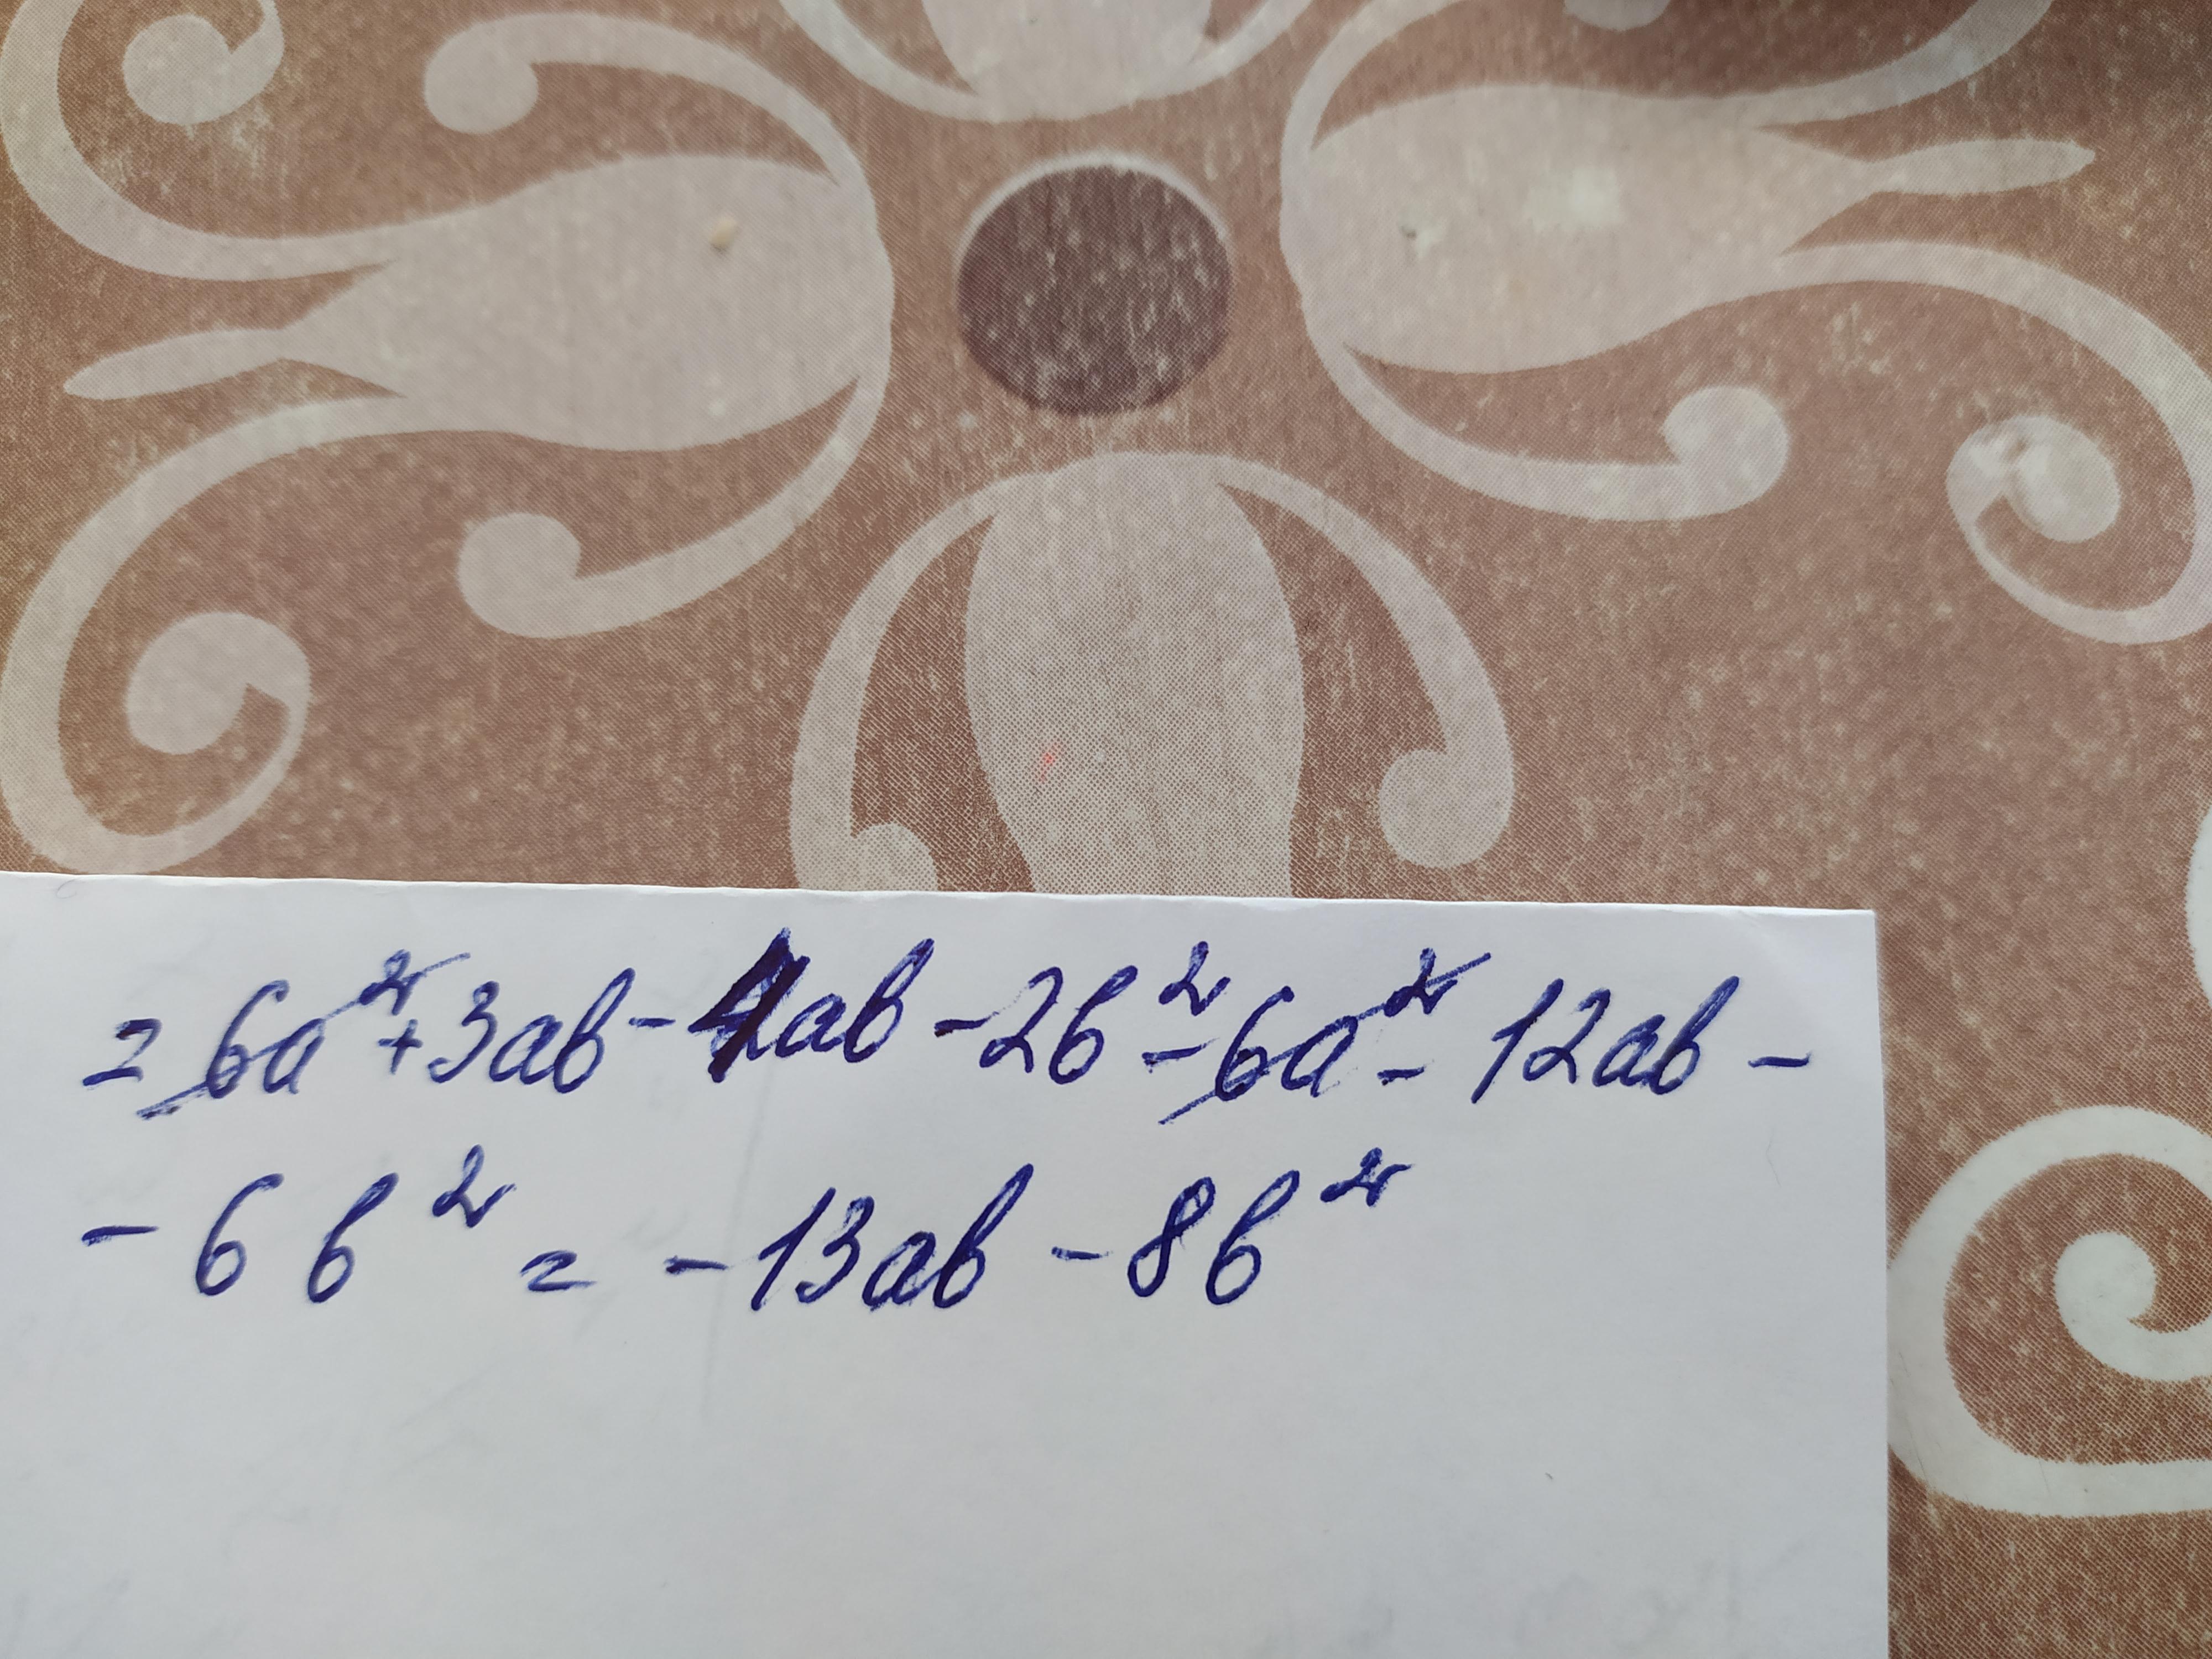 = 6a² + 3ab - 4ab - 2b² - 6a² - 12ab -
- 6b² = - 13ab - 8b²